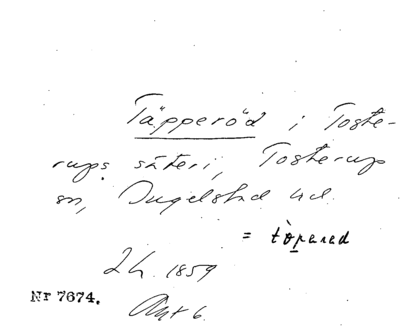 Täpperöd i Toste-
rups säteri, Tosterup
sn, Ingelstad hd.
= tòpered
Lh. 1859
Nr 7674.